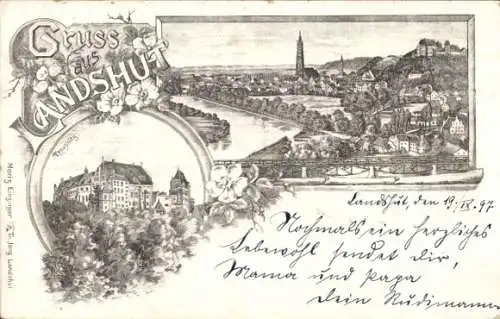 Gruss
aus
LANDSHUT
Trausnitz
Landshut, den 19/IX. 97
Nochmals ein herzliches
Lebewohl sendet dir,
Mama und Papa
dein Rudimann